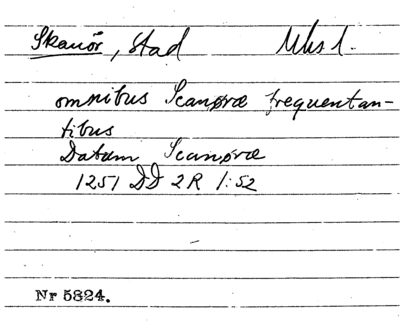 Skanör, Stad Uhs 1.
omnibus Scanøræ frequentan-
tibus
Datum Scanøræ
1251 DD 2R 1:52
Nr 5824.